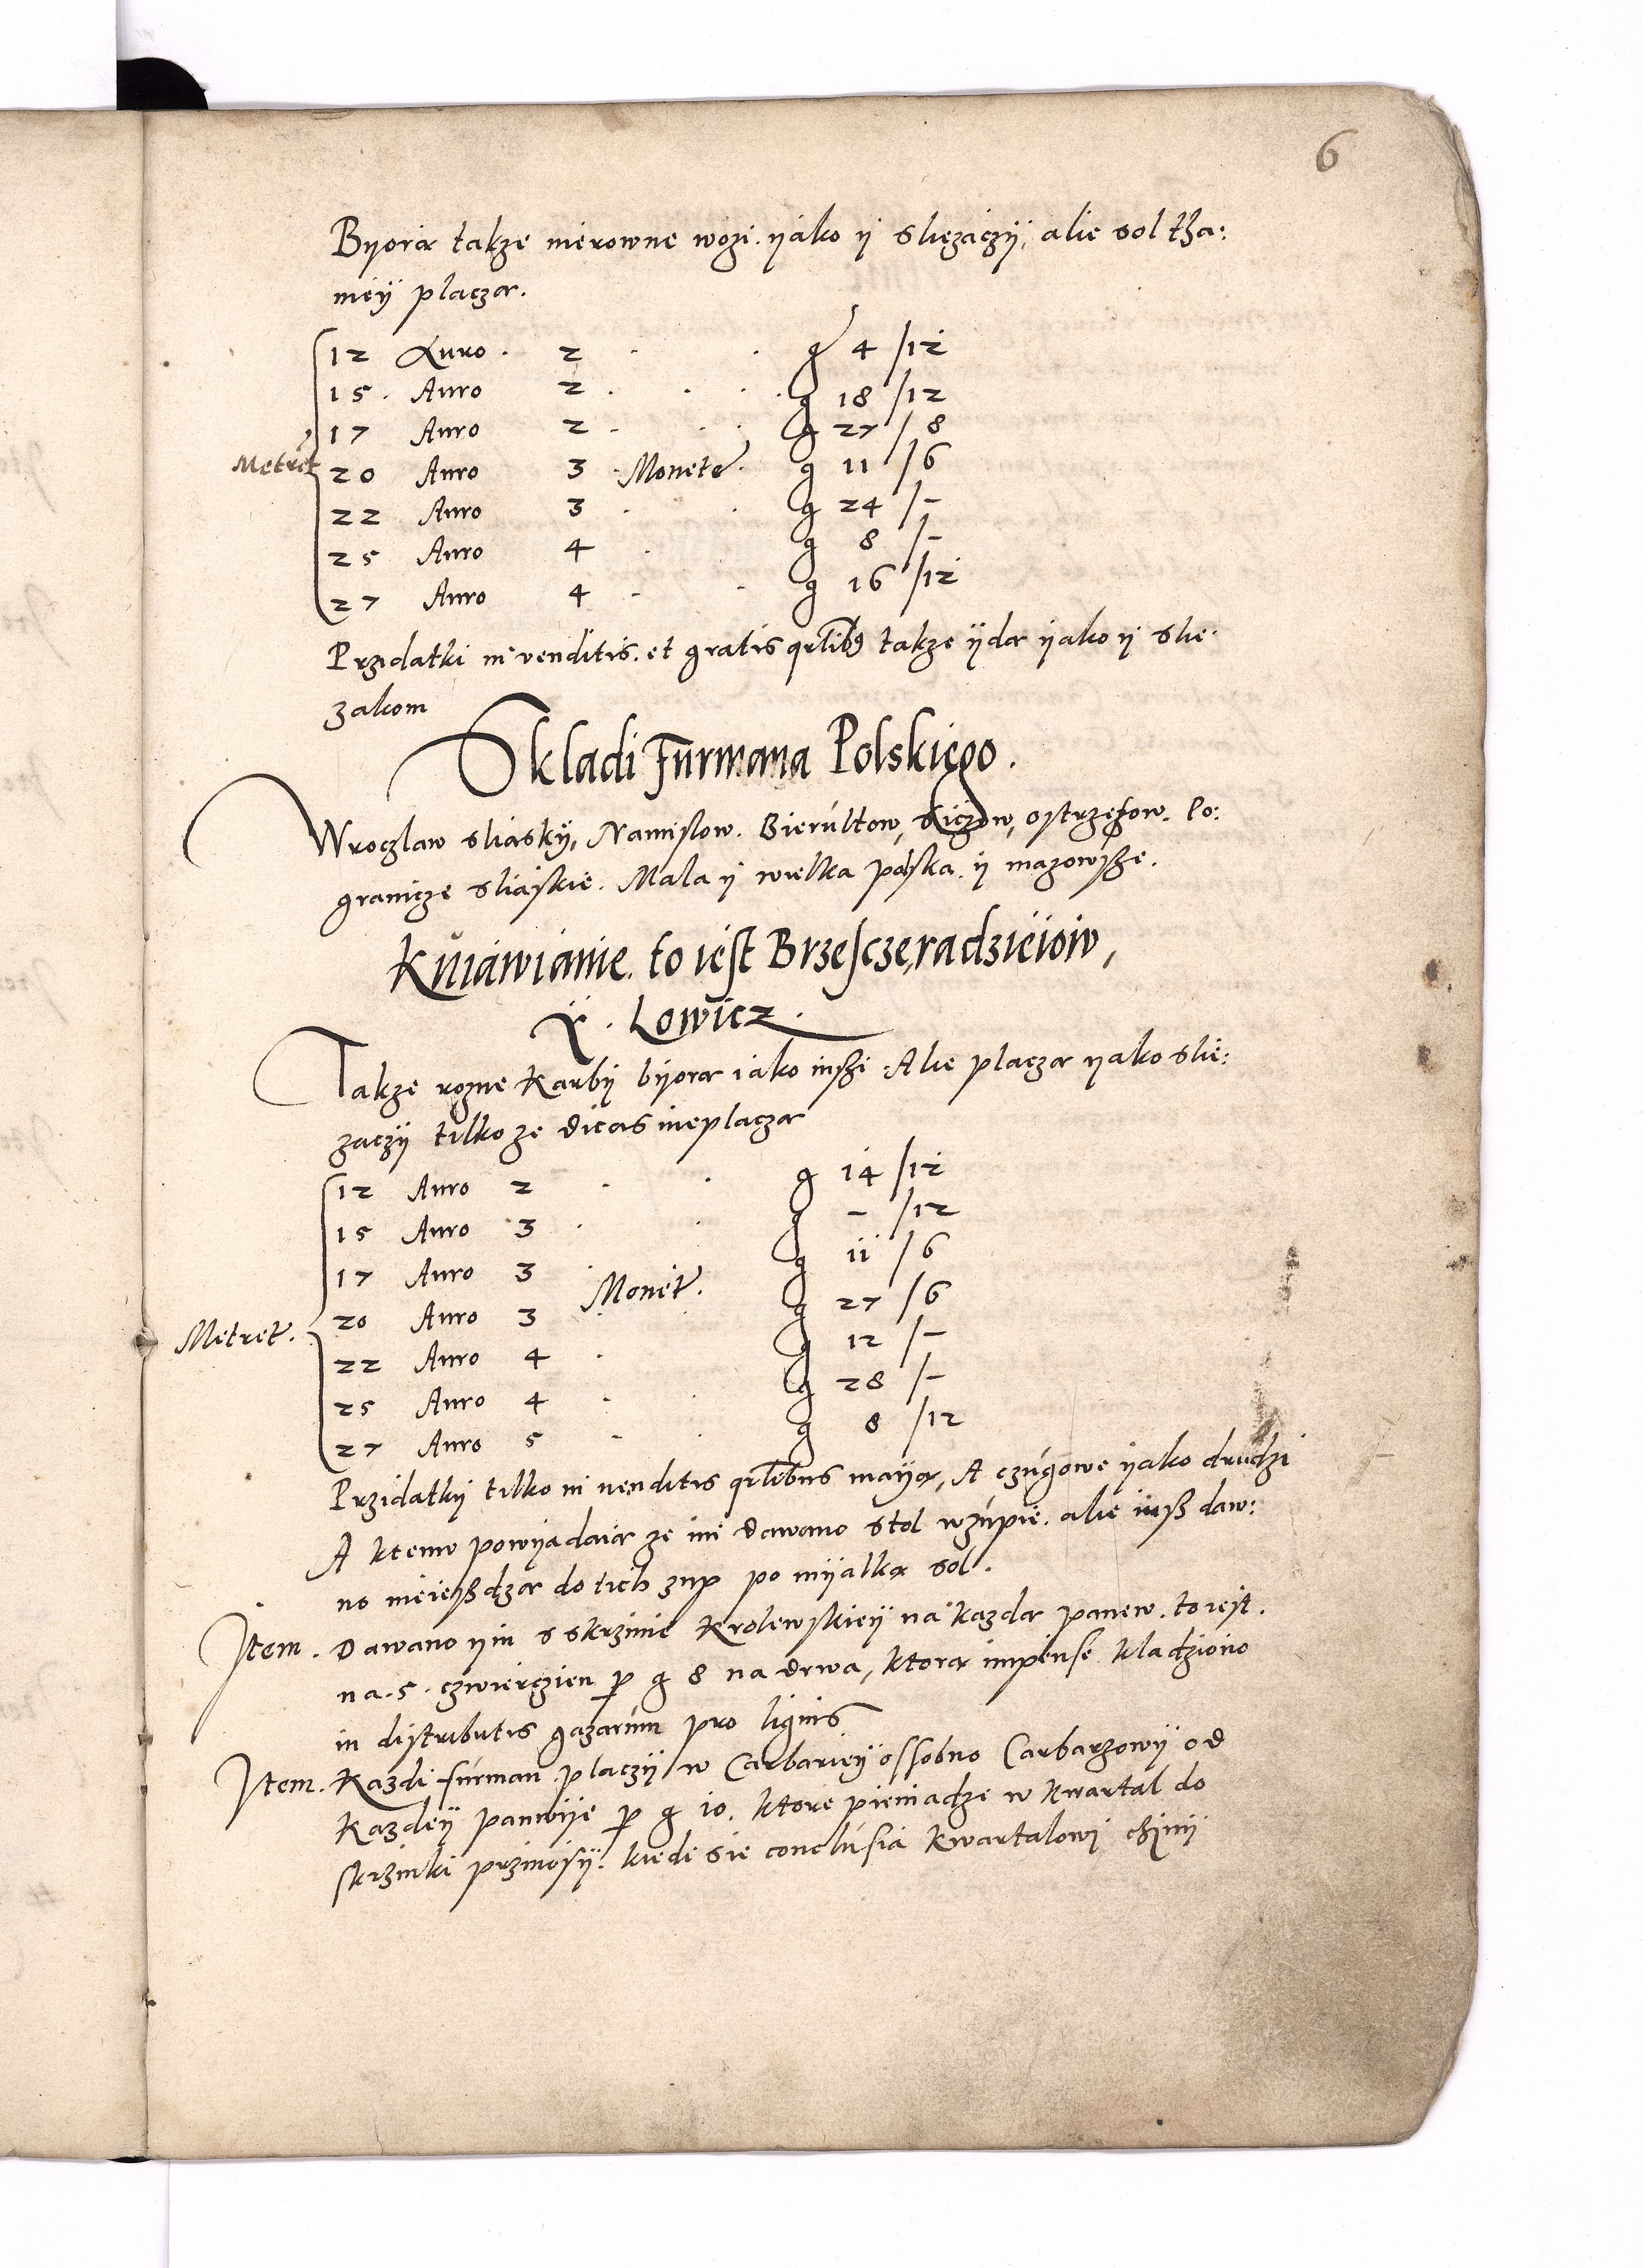 6
Byorą takze nierowne wozi. yako y slięzączy, alie sol tha:
niey placzą.
12 Auro. 2 . . g 4 /12
15. Auro 2 . . . g 18 /12
17 Auro 2 . . . g 27 / 8
Metret 20 Auro 3 . Monetę. g 11 /6
22 Auro 3 . . g 24 /–
25 Auro 4 . g 8 /–
27 Auro 4 . . g 16 /12
Przidatki in venditis. et gratis qrlibꝯ takze ydą yako y slie:
zakom
Skladi Furmana Polskiego.
Wroczlaw sliasky, Namislow. Bierultow, Siczow, ostrzęsow. Po:
granicze sliąskie. Mala y wielka polska. y mazowsze.
Kuiawianie. to iest Brzescze, radzieiow,
X. Lowicz.
Takze rozne Karby byorą iako inszi. Alie placzą yako slię:
zaczy tilko ze dicas nieplaczą
12 Auro 2 . . g 14 /12
15 Auro 3 . . g – /12
17 Auro 3 . g 11 /6
Monet.
20 Auro 3 . g 27 /6
Metret.
22 Auro 4 . g 12 /–
25 Auro 4 . . g 28 /–
27 Auro 5 . . g 8 /12
Przidatky tilko in venditis qrlibus mayą, A czugowe yako drudzi
A ktemu powyadaią ze im dawano stol wzupie. alie iusz daw:
no nieieszdzą do tich zup po myalką sol.
Item. Dawano yim s skrzinie Krolewskiey na kazdą panew. to iest.
na. 5. czwierczien ꝑ g 8 na drwa, ktorą impense kladziono
in distributis gazarum pro lignis
Item. Kazdi furman. placzy w Carbariey ossobno Carbarzowy od
Kazdey panwye ꝑ g 10. ktore pieniadze w kwartal do
skrzinki przinosy. kiedi sie conclusia kwartalowi chiny